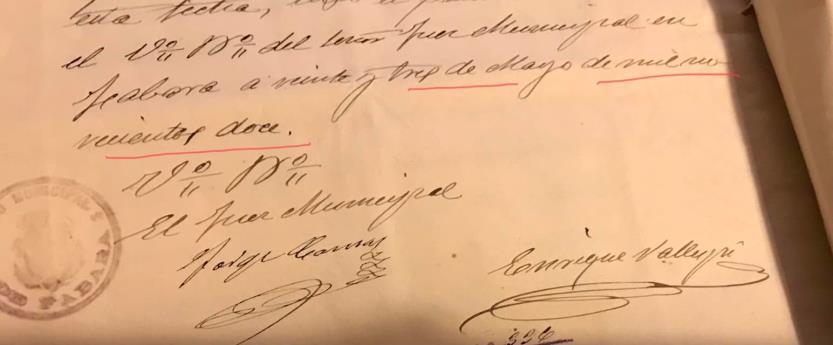 esta fecha, 
el V.º B.º del Señor Juez Municipal en
Fabara a veinte y tres de Mayo de mil no
vecientos doce.
V.º B.º
El Juez Municipal
Jorge
Enrique
MUNICIPAL
DE FABARA